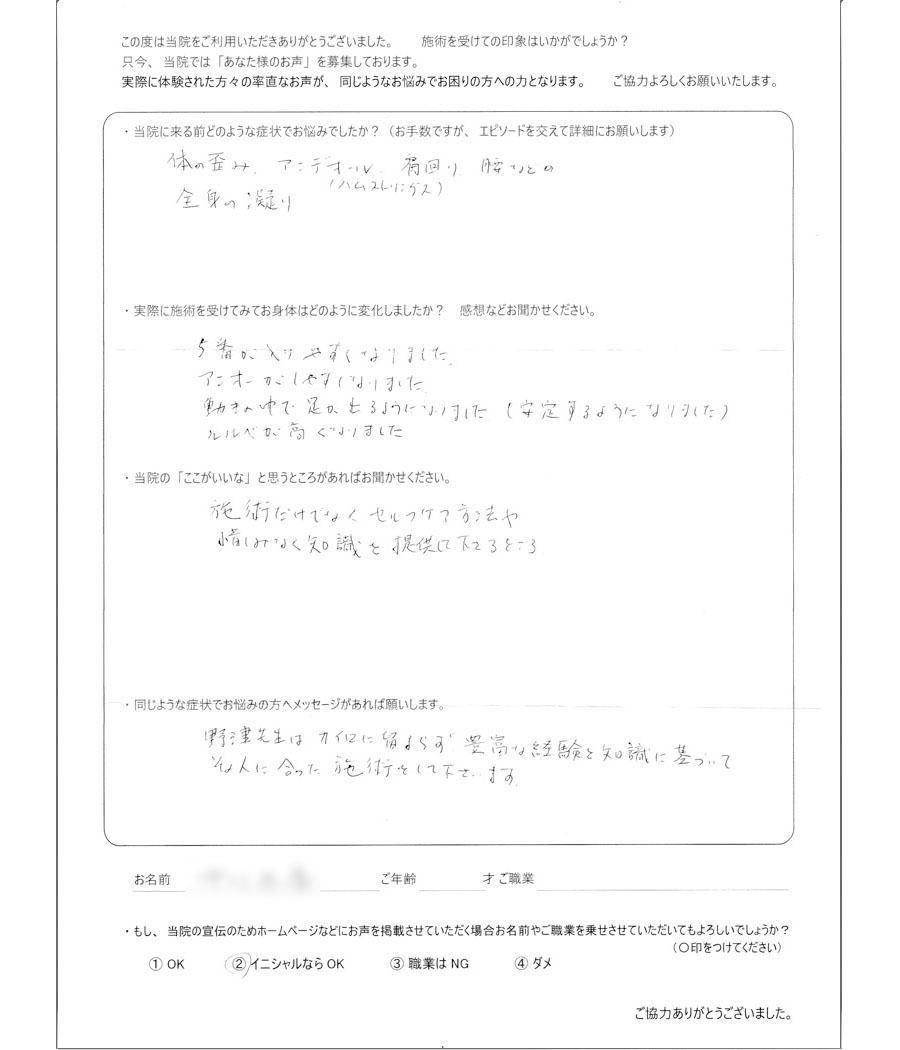 この度は当院をご利用いただきありがとうございました。　施術を受けての印象はいかがでしょうか？
只今、当院では「あなた様のお声」を募集しております。
実際に体験された方々の率直なお声が、同じようなお悩みでお困りの方への力となります。　ご協力よろしくお願いいたします。
・当院に来る前どのような症状でお悩みでしたか？（お手数ですが、エピソードを交えて詳細にお願いします）
体の歪み、アンデオール、裾回り、腰などの
（ハムストリングス）
全身の凝り
・実際に施術を受けてみてお身体はどのように変化しましたか？　感想などお聞かせください。
5番が入りやすくなりました。
アンオーがしやすくなりました
動きの中で足が出るようになりました（安定するようになりました）
ルルベが高くなりました
・当院の「ここがいいな」と思うところがあればお聞かせください。
施術だけでなくセルフケア方法や
惜しみなく知識を提供して下さるところ
・同じような症状でお悩みの方へメッセージがあれば願いします。
野津先生はカイロに留まらず豊富な経験と知識に基づいて
その人に合った施術をして下さいます。
お名前　ご年齢　才 ご職業
・もし、当院の宣伝のためホームページなどにお声を掲載させていただく場合お名前やご職業を乗せさせていただいてもよろしいでしょうか？
（〇印をつけてください）
① OK　② イニシャルなら OK　③ 職業は NG　④ ダメ
ご協力ありがとうございました。